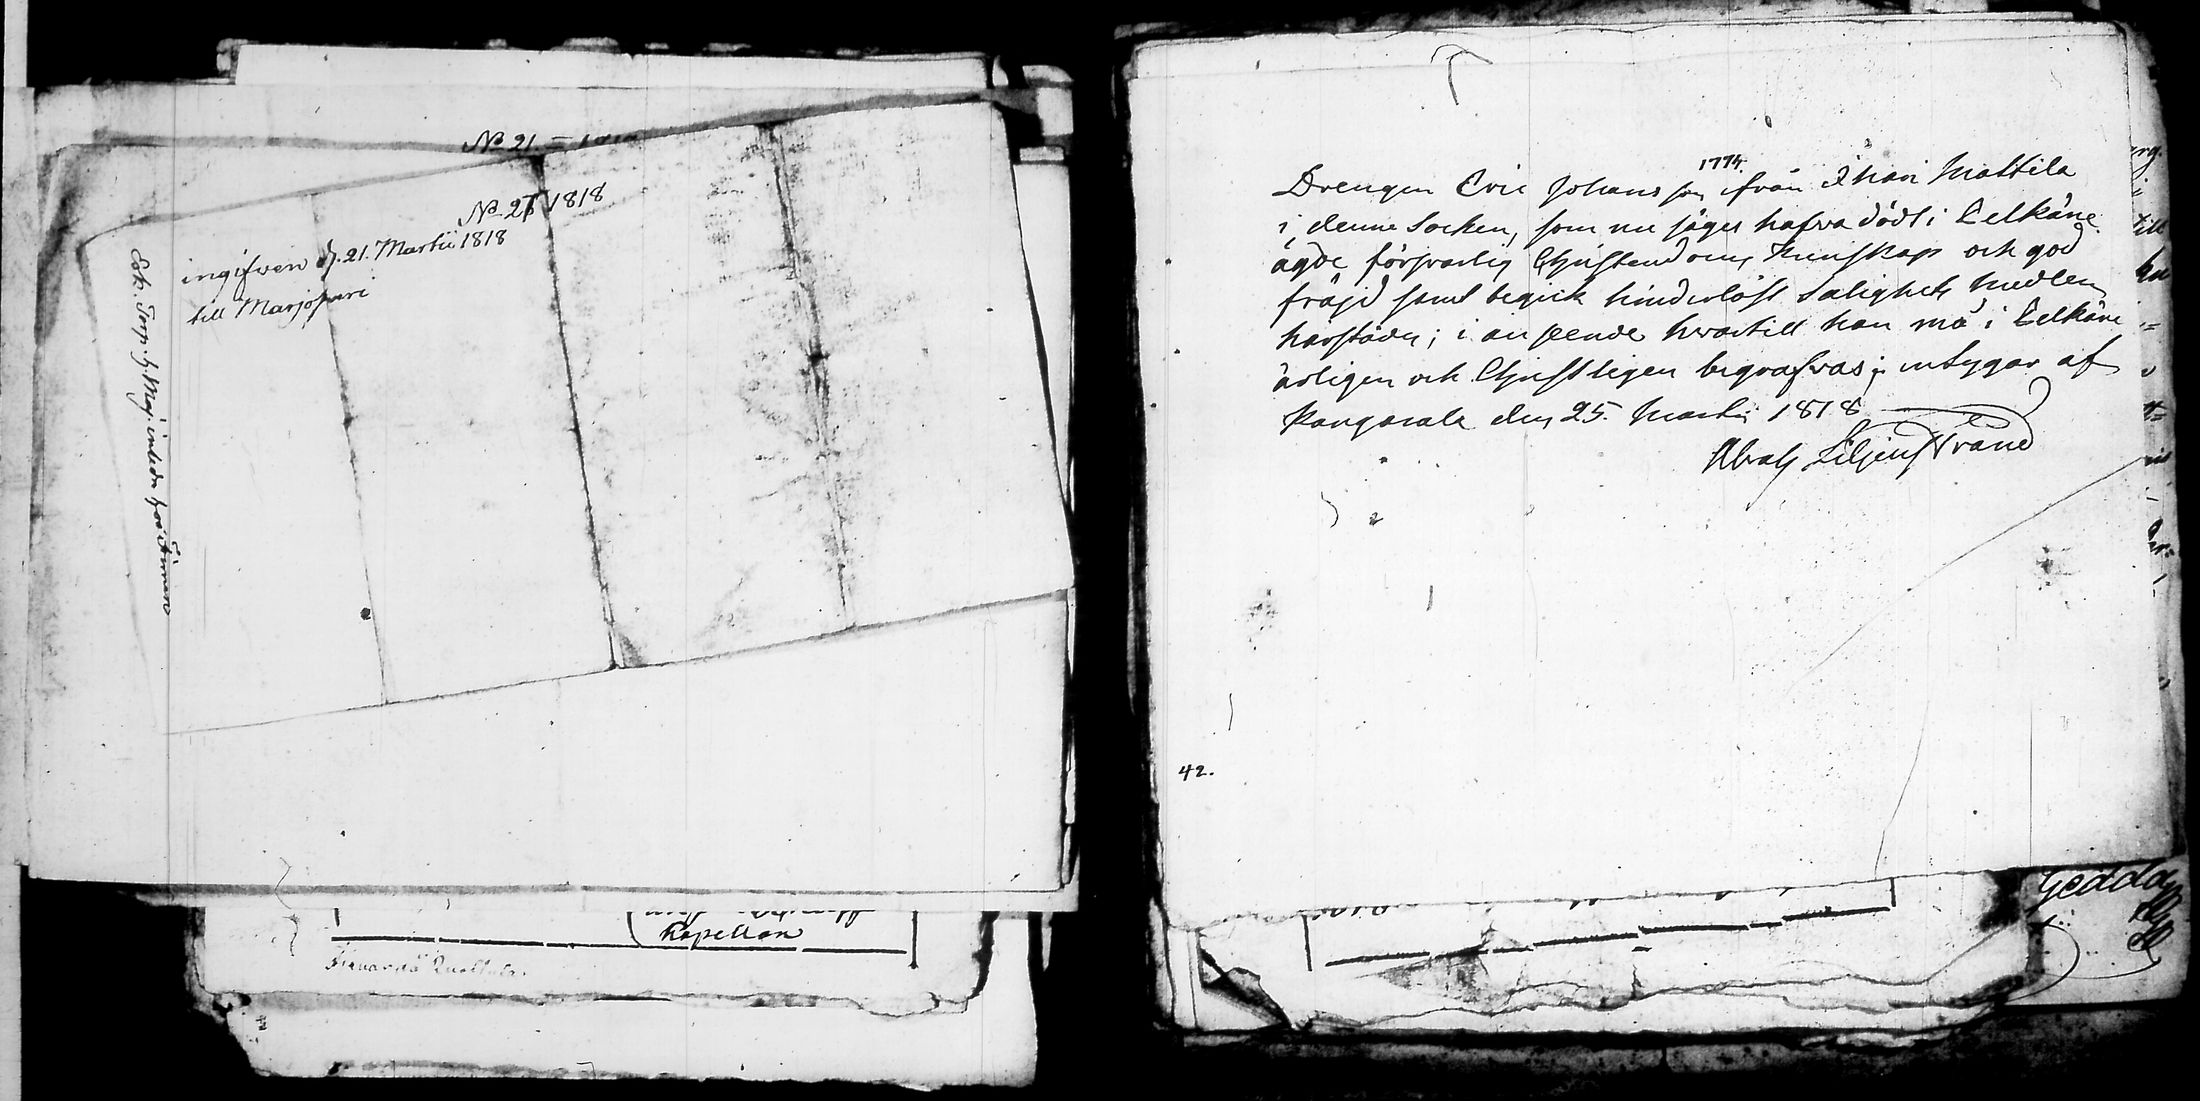 No 21. = 1818
No 26 1818
ingifven d. 21. Martii 1818
till Marjosari
Esk. Torp. h. Maj. inledn
Kapellan
1774.
Drengen Eric Johansson ifrån Ihari Mattila
i denne Socken, som nu säges hafva dödt i Lelkäne
ägde försvarlig Christendoms Kunskap och god
fräjd samt begick hinderlöst Salighets medlen
härstädes; i anseende hvartill han må i Lelkäne
ärligen och Christligen begrafvas; intygar af
Kangasala den 25. Martii 1818
Abrah Liljenstrand
42.
Gedda